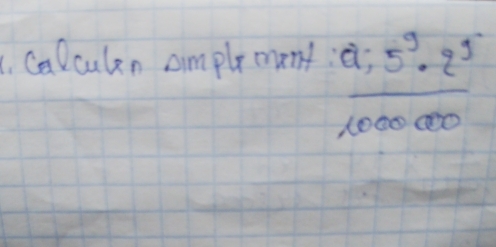 1. Calculer simplement : a; 5⁹ · 2⁹
1000 000